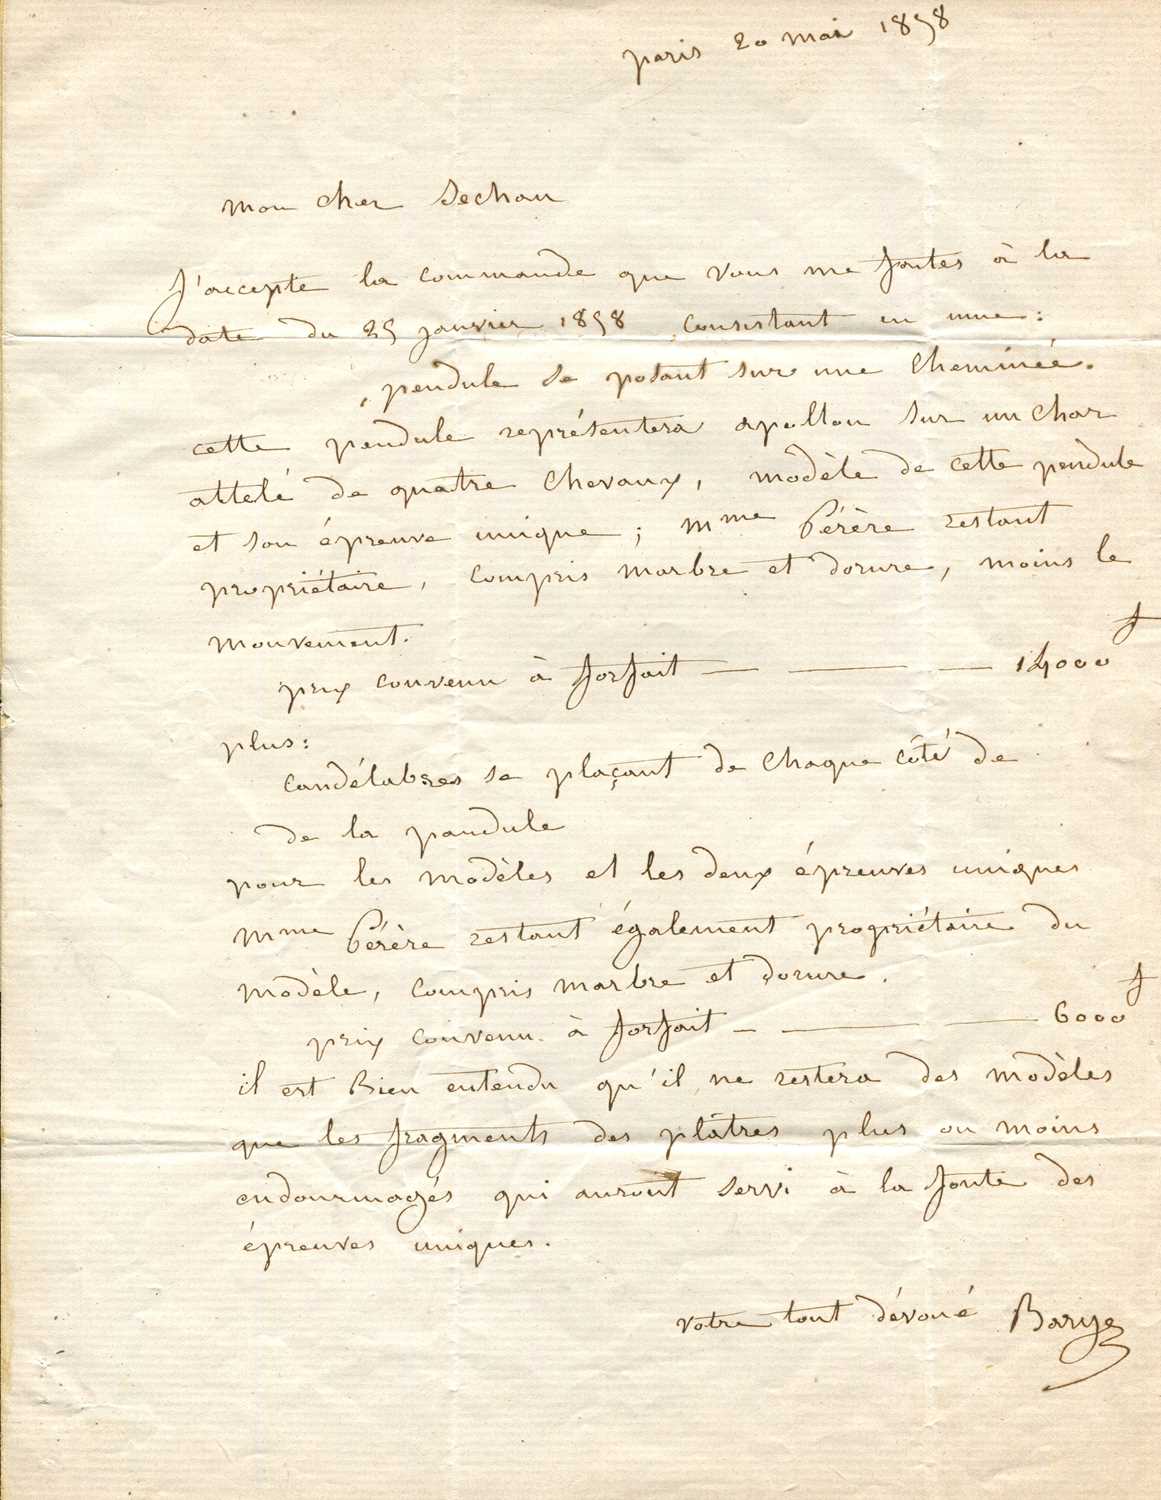 paris 20 mai 1858
mon cher Sechan
J'accepte la commande que vous me faites à la
date du 25 janvier 1858 consistant en une :
pendule se posant sur une cheminée.
cette pendule représentera apollon sur un char
attelé de quatre chevaux, modèle de cette pendule
et son épreuve unique ; mme Pérère restant
propriétaire, compris marbre et dorure, moins le
mouvement.
prix convenu à forfait — — — 14000 f
plus :
candélabres se plaçant de chaque côté de
de la pandule
pour les modèles et les deux épreuves uniques
mme Pérère restant également propriétaire du
modèle, compris marbre et dorure.
prix convenu à forfait — — — 6000 f
il est Bien entendu qu'il ne restera des modèles
que les fragments des plâtres plus ou moins
endourmagés qui auront servi à la fonte des
épreuves uniques.
votre tout dévoué Barye